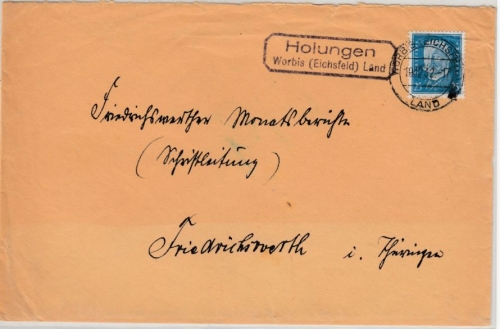 Holungen
Worbis (Eichsfeld) Land
WORBIS (EICHSFELD)
LAND
Friedrichswerther Monatsberichte
(Schriftleitung)
Friedrichswerth i. Thüringen